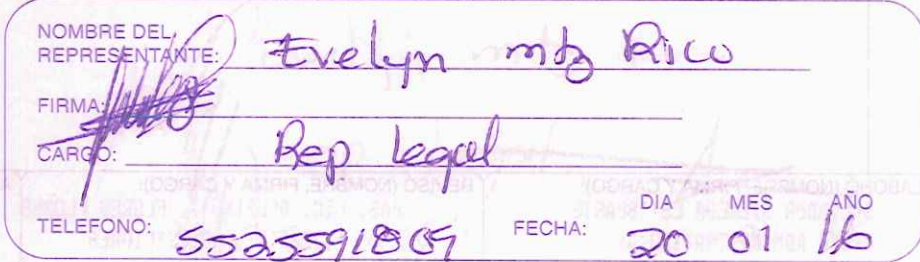 NOMBRE DEL
REPRESENTANTE: Evelyn mtz Rico
FIRMA:
CARGO: Rep legal
DIA MES AÑO
TELEFONO: 5525591809 FECHA: 20 01 16